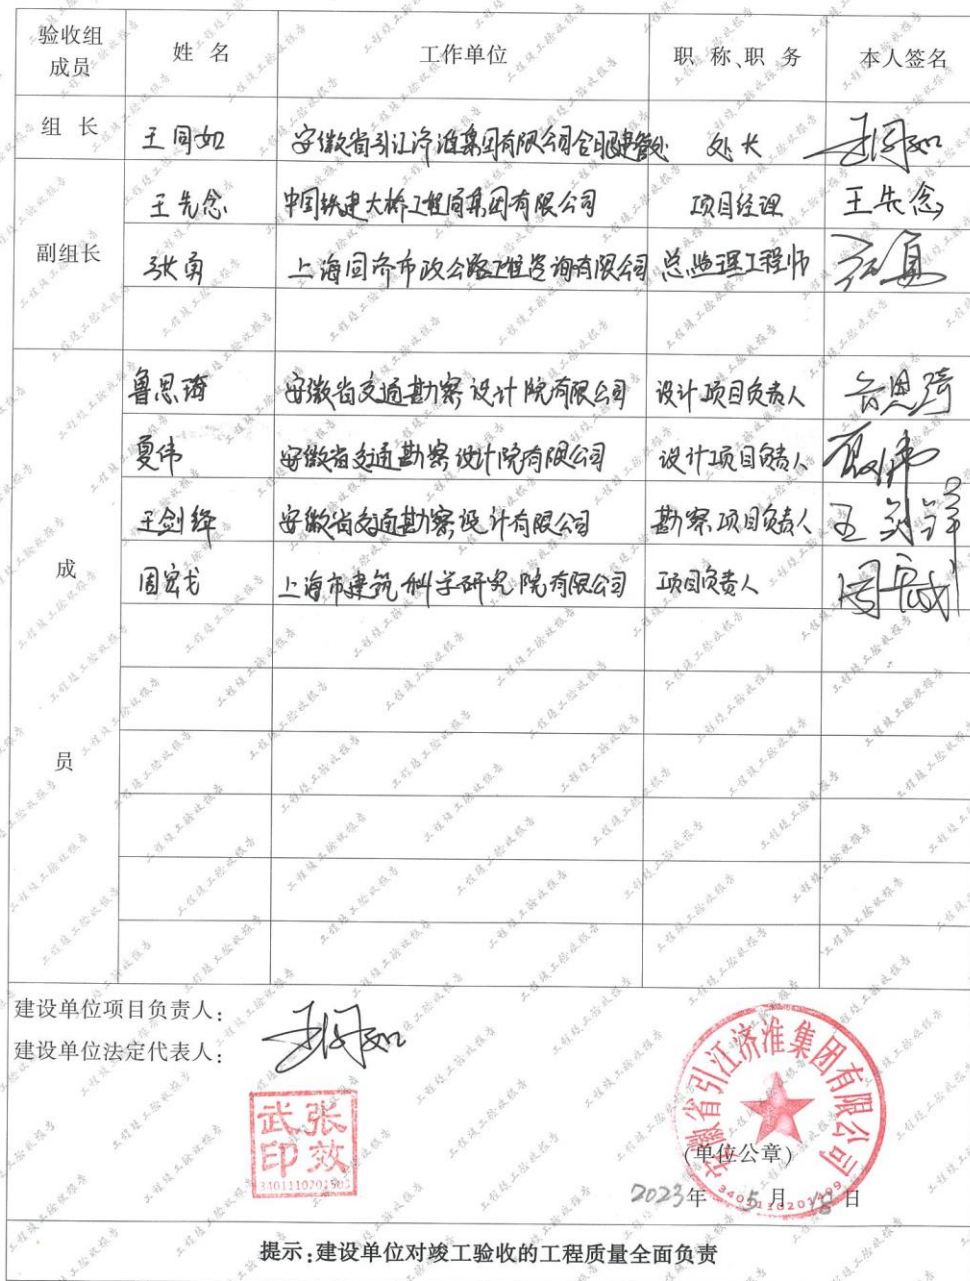 验收组成员 姓 名 工作单位 职 称、职 务 本人签名
组 长 王同如 安徽省引江济淮集团有限公司合肥建管处 处长 王同如
副组长
王先念 中国铁建大桥工程局集团有限公司 项目经理 王先念
张勇 上海同济市政公路工程咨询有限公司 总监理工程师 张勇
成员
鲁思琦 安徽省交通勘察设计院有限公司 设计项目负责人 鲁思琦
夏伟 安徽省交通勘察设计院有限公司 设计项目负责人 夏伟
王剑锋 安徽省交通勘察设计有限公司 勘察项目负责人 王剑锋
周宏戈 上海市建筑科学研究院有限公司 项目负责人
建设单位项目负责人： 王同如
建设单位法定代表人：
张效武印
3401110201503
安徽省引江济淮集团有限公司
(单位公章)
2023年 5月 18日
提示：建设单位对竣工验收的工程质量全面负责
工程竣工验收报告